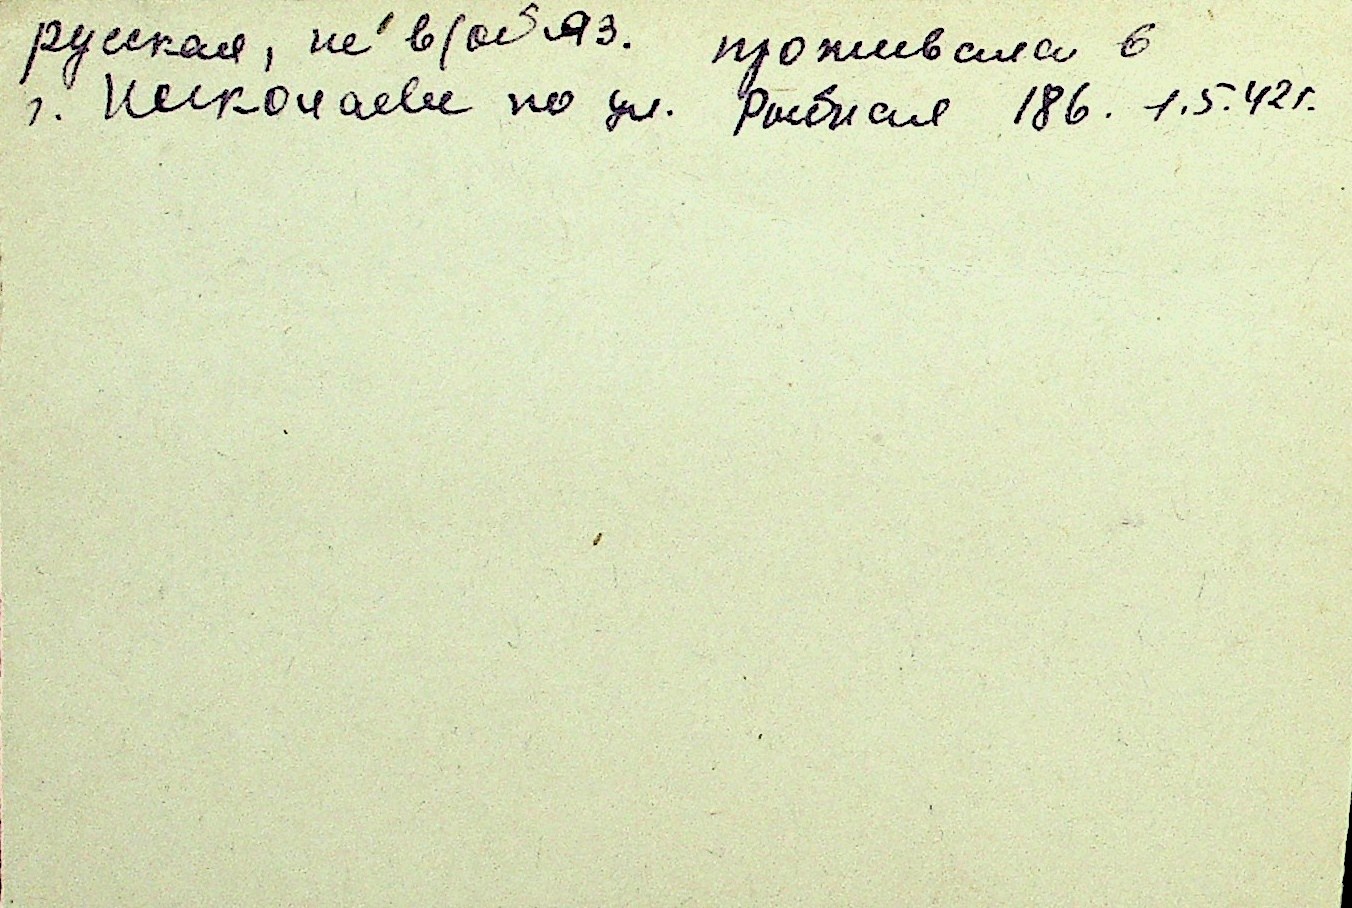 русская, не в/обяз. проживала в
г. Николаеве по ул. Рыбная 186. 1.5.42г.